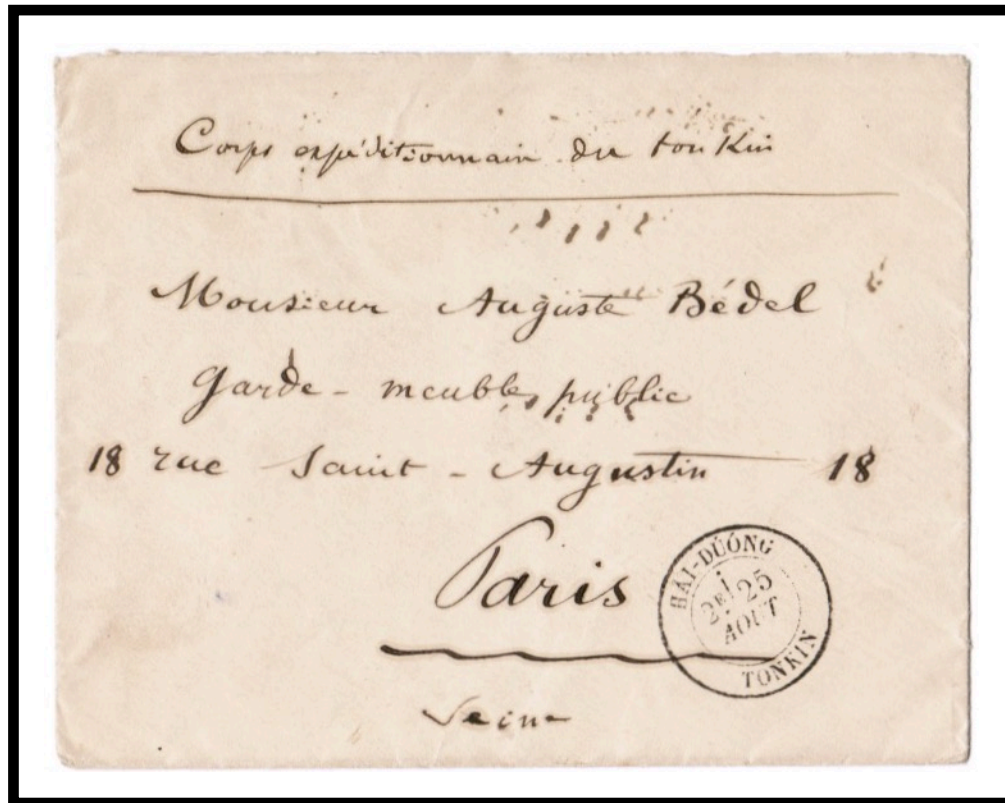 Corps expéditionnair du tonkin
Monsieur Auguste Bédel
Garde-meubles public
18 rue Saint-Augustin 18
Paris
Seine
HAI-DUÓNG
2E/ 25
AOUT
TONKIN